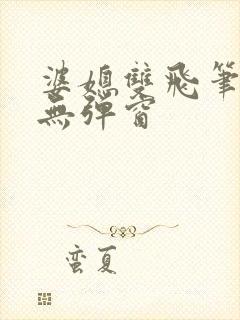 婆媳雙飛筆
無彈窗
蛮夏